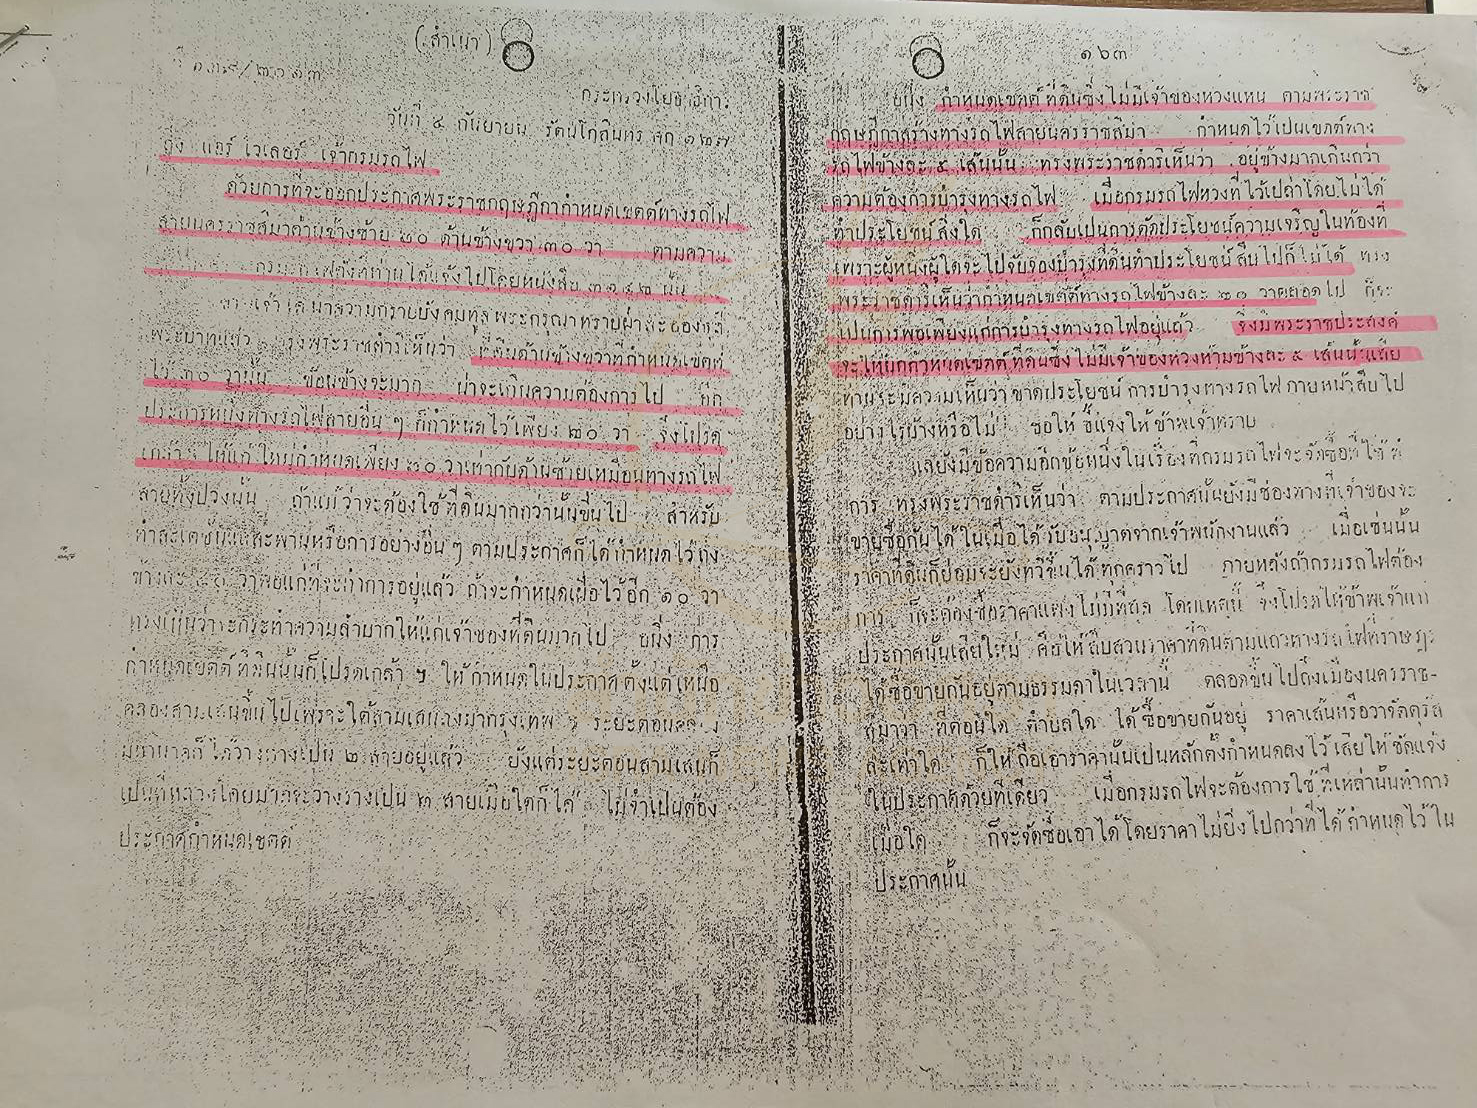 (สำเนา)
กระทรวงโยธาธิการ
วันที่ ๔ กันยายน รัตนโกสินทร ศก ๑๒๗
ถึง แอร์ ไวเลอร์ เจ้ากรมรถไฟ
ด้วยการที่จะออกประกาศพระราชกฤษฎีกากำหนดเขตต์ทางรถไฟ
สายนครราชสิมาด้านข้างซ้าย ๒๐ ด้านข้างขวา ๓๐ วา ตามความ
ดังที่ท่านได้แจ้งไปโดยหนังสือ นั้น
ข้าพเจ้าได้นำความกราบบังคมทูลพระกรุณาทราบฝ่าละอองธุลี
พระบาทแล้ว ทรงพระราชดำริห์เห็นว่า ที่ดินด้านข้างขวาที่กำหนดเขตต์
ไว้ ๓๐ วานั้น ข้อนข้างจะมาก น่าจะเกินความต้องการไป อีก
ประการหนึ่งทางรถไฟสายอื่น ๆ ก็กำหนดไว้เพียง ๒๐ วา จึงโปรด
เกล้า ฯ ให้แก้ใหม่กำหนดเพียง ๒๐ วาเท่ากับด้านซ้ายเหมือนทางรถไฟ
สายทั้งปวงนั้น ถ้าแม้ว่าจะต้องใช้ที่ดินมากกว่านั้นขึ้นไป สำหรับ
ทำสะเตชั่นและสะพานหรือการอย่างอื่น ๆ ตามประกาศก็ได้กำหนดไว้ถึง
ข้างละ วาพอแก่ที่จะทำการอยู่แล้ว ถ้าจะกำหนดเผื่อไว้อีก ๑๐ วา
ทรงเห็นว่าจะกระทำความลำบากให้แก่เจ้าของที่ดินมากไป อนึ่ง การ
กำหนดเขตต์ที่ดินนั้นก็โปรดเกล้า ฯ ให้กำหนดในประกาศตั้งแต่เหนือ
คลองสามเสนขึ้นไปเพราะใต้สามเสนลงมากรุงเทพ ฯ ระยะตอนคลอง
ก็ได้วางรางเป็น ๒ สายอยู่แล้ว ยังแต่ระยะตอนสามเสนก็
เป็นที่หลวงโดยมากจะวางรางเป็น ๒ สายเมื่อใดก็ได้ ไม่จำเป็นต้อง
ประกาศกำหนดเขตต์
๑๖๓
อนึ่ง กำหนดเขตต์ที่ดินซึ่งไม่มีเจ้าของหวงแหน ตามพระราช
กฤษฎีกาสร้างทางรถไฟสายนครราชสิมา กำหนดไว้เป็นเขตต์ทาง
รถไฟข้างละ ๕ เส้นนั้น ทรงพระราชดำริห์เห็นว่า อยู่ข้างมากเกินกว่า
ความต้องการบำรุงทางรถไฟ เมื่อกรมรถไฟหวงที่ไว้เปล่าโดยไม่ได้
ทำประโยชน์สิ่งใด ก็กลับเป็นการตัดประโยชน์ความเจริญในท้องที่
เพราะผู้หนึ่งผู้ใดจะไปจับจองบำรุงที่ดินทำประโยชน์สืบไปก็ไม่ได้ ทรง
พระราชดำริห์เห็นว่ากำหนดเขตต์ทางรถไฟข้างละ ๒๐ วาตลอดไป ก็จะ
เป็นการพอเพียงแก่การบำรุงทางรถไฟอยู่แล้ว จึงมีพระราชประสงค์
จะให้ยกกำหนดเขตต์ที่ดินซึ่งไม่มีเจ้าของหวงห้ามข้างละ ๕ เส้นนั้นเสีย
ท่านจะมีความเห็นว่าขาดประโยชน์การบำรุงทางรถไฟภายหน้าสืบไป
อย่างไรบ้างหรือไม่ ขอให้ชี้แจงให้ข้าพเจ้าทราบ
แลยังมีข้อความอีกข้อหนึ่งในเรื่องที่กรมรถไฟจะจัดซื้อที่ใช้ทำ
การ ทรงพระราชดำริห์เห็นว่า ตามประกาศนั้นยังมีช่องทางที่เจ้าของจะ
ขายซื้อกันได้ในเมื่อได้รับอนุญาตจากเจ้าพนักงานแล้ว เมื่อเช่นนั้น
ราคาที่ดินก็ย่อมจะยังทวีขึ้นได้ทุกคราวไป ภายหลังถ้ากรมรถไฟต้อง
การ ก็จะต้องซื้อราคาแพงไม่มีที่สุด โดยเหตุนี้ จึงโปรดให้ข้าพเจ้าแก้
ประกาศนั้นเสียใหม่ คือให้สืบสวนราคาที่ดินตามแถวทางรถไฟที่ราษฎร
ได้ซื้อขายกันอยู่ตามธรรมดาในเวลานี้ ตลอดขึ้นไปถึงเมืองนครราช-
สิมาว่า ที่ตอนใด ตำบลใด ได้ซื้อขายกันอยู่ ราคาเส้นหรือวาจัตุรัส
ละเท่าใด ก็ให้ถือเอาราคานั้นเป็นหลักตั้งกำหนดลงไว้เสียให้ชัดแจ้ง
ในประกาศด้วยทีเดียว เมื่อกรมรถไฟจะต้องการใช้ที่เหล่านั้นทำการ
เมื่อใด ก็จะจัดซื้อเอาได้โดยราคาไม่ยิ่งไปกว่าที่ได้กำหนดไว้ใน
ประกาศนั้น